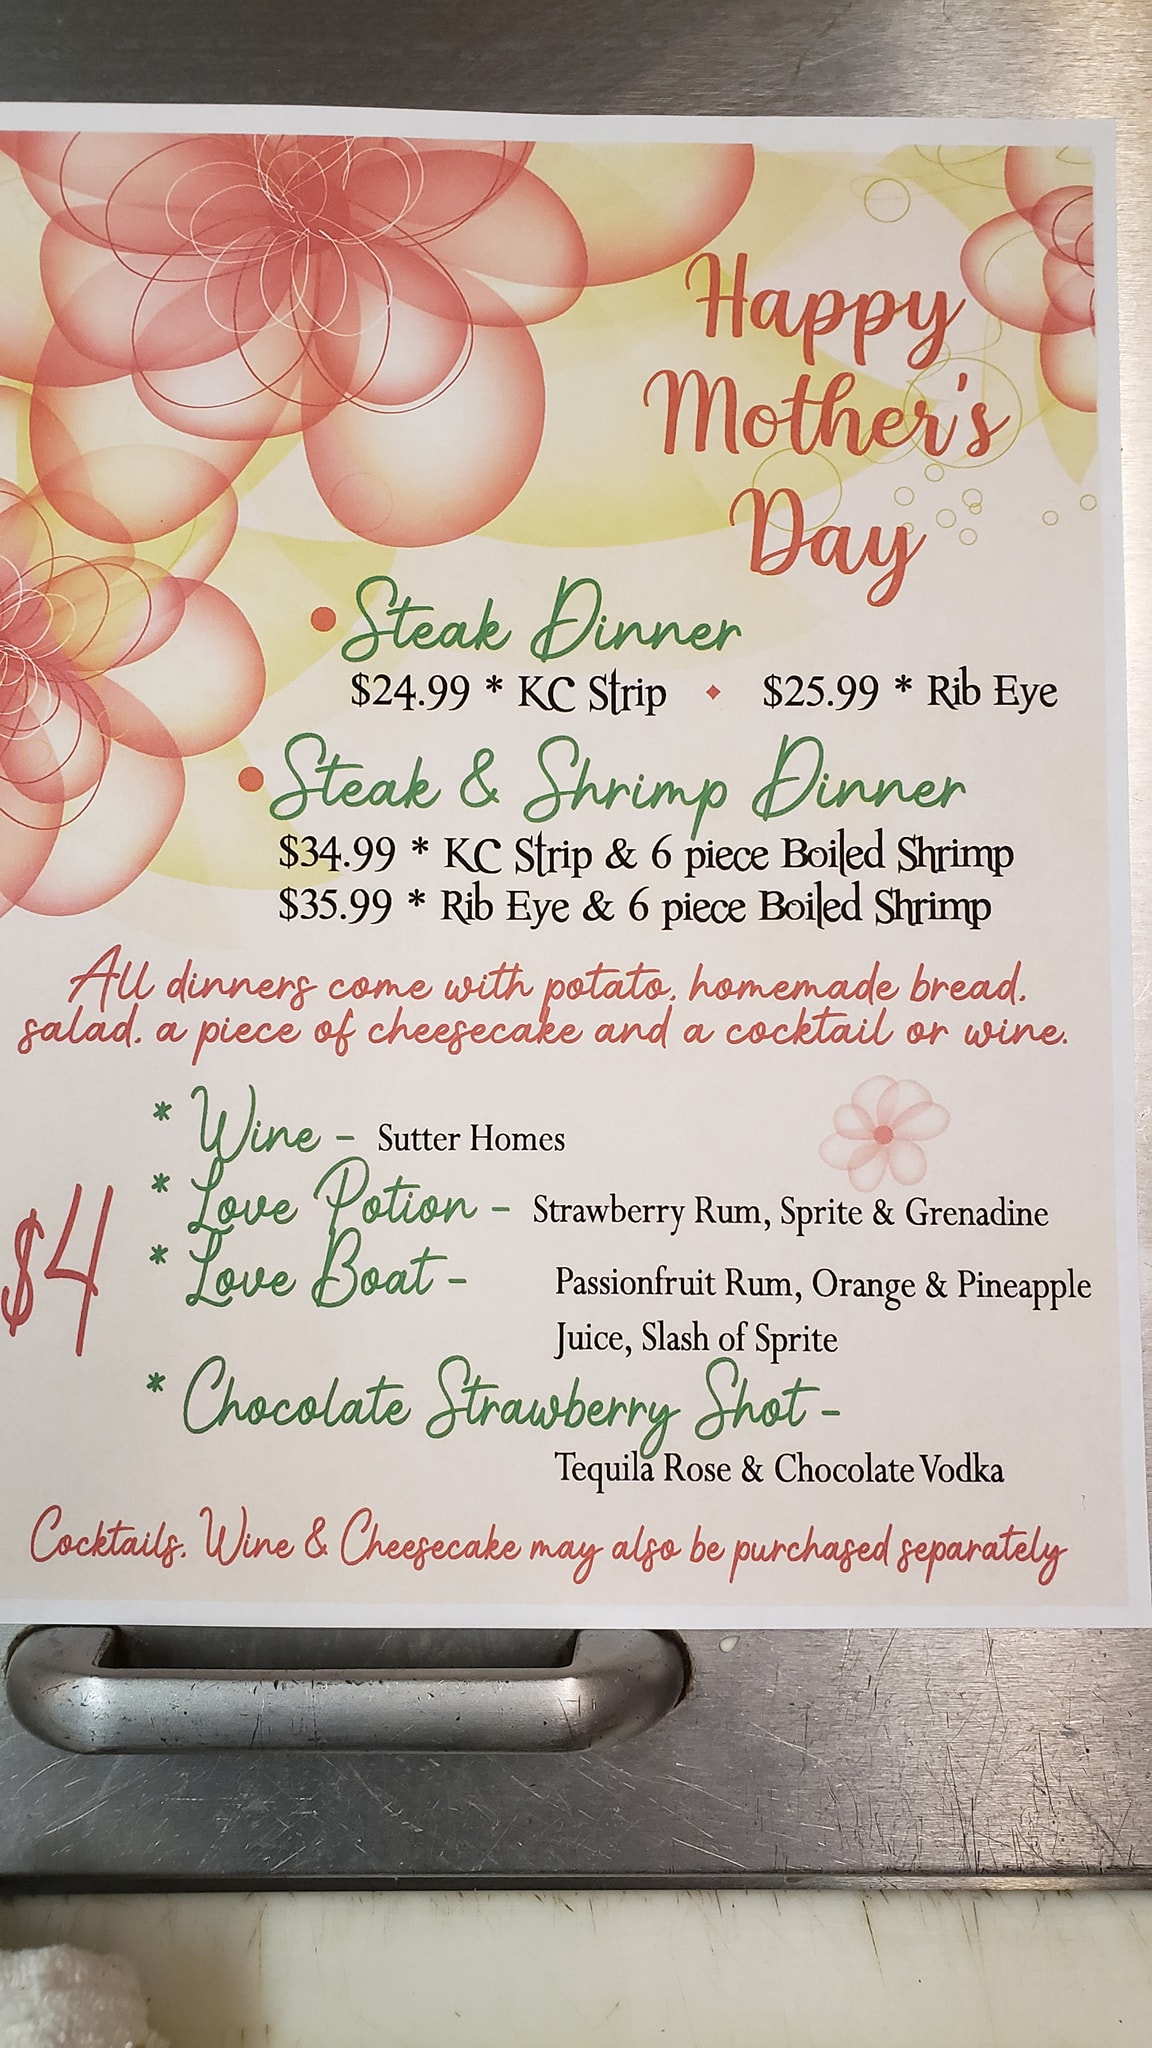 Happy
Mother's
Day
• Steak Dinner
$24.99 * KC Strip ♦ $25.99 * Rib Eye
• Steak & Shrimp Dinner
$34.99 * KC Strip & 6 piece Boiled Shrimp
$35.99 * Rib Eye & 6 piece Boiled Shrimp
All dinners come with potato, homemade bread,
salad, a piece of cheesecake and a cocktail or wine.
* Wine - Sutter Homes
* Love Potion - Strawberry Rum, Sprite & Grenadine
$4
* Love Boat - Passionfruit Rum, Orange & Pineapple
Juice, Slash of Sprite
* Chocolate Strawberry Shot -
Tequila Rose & Chocolate Vodka
Cocktails, Wine & Cheesecake may also be purchased separately